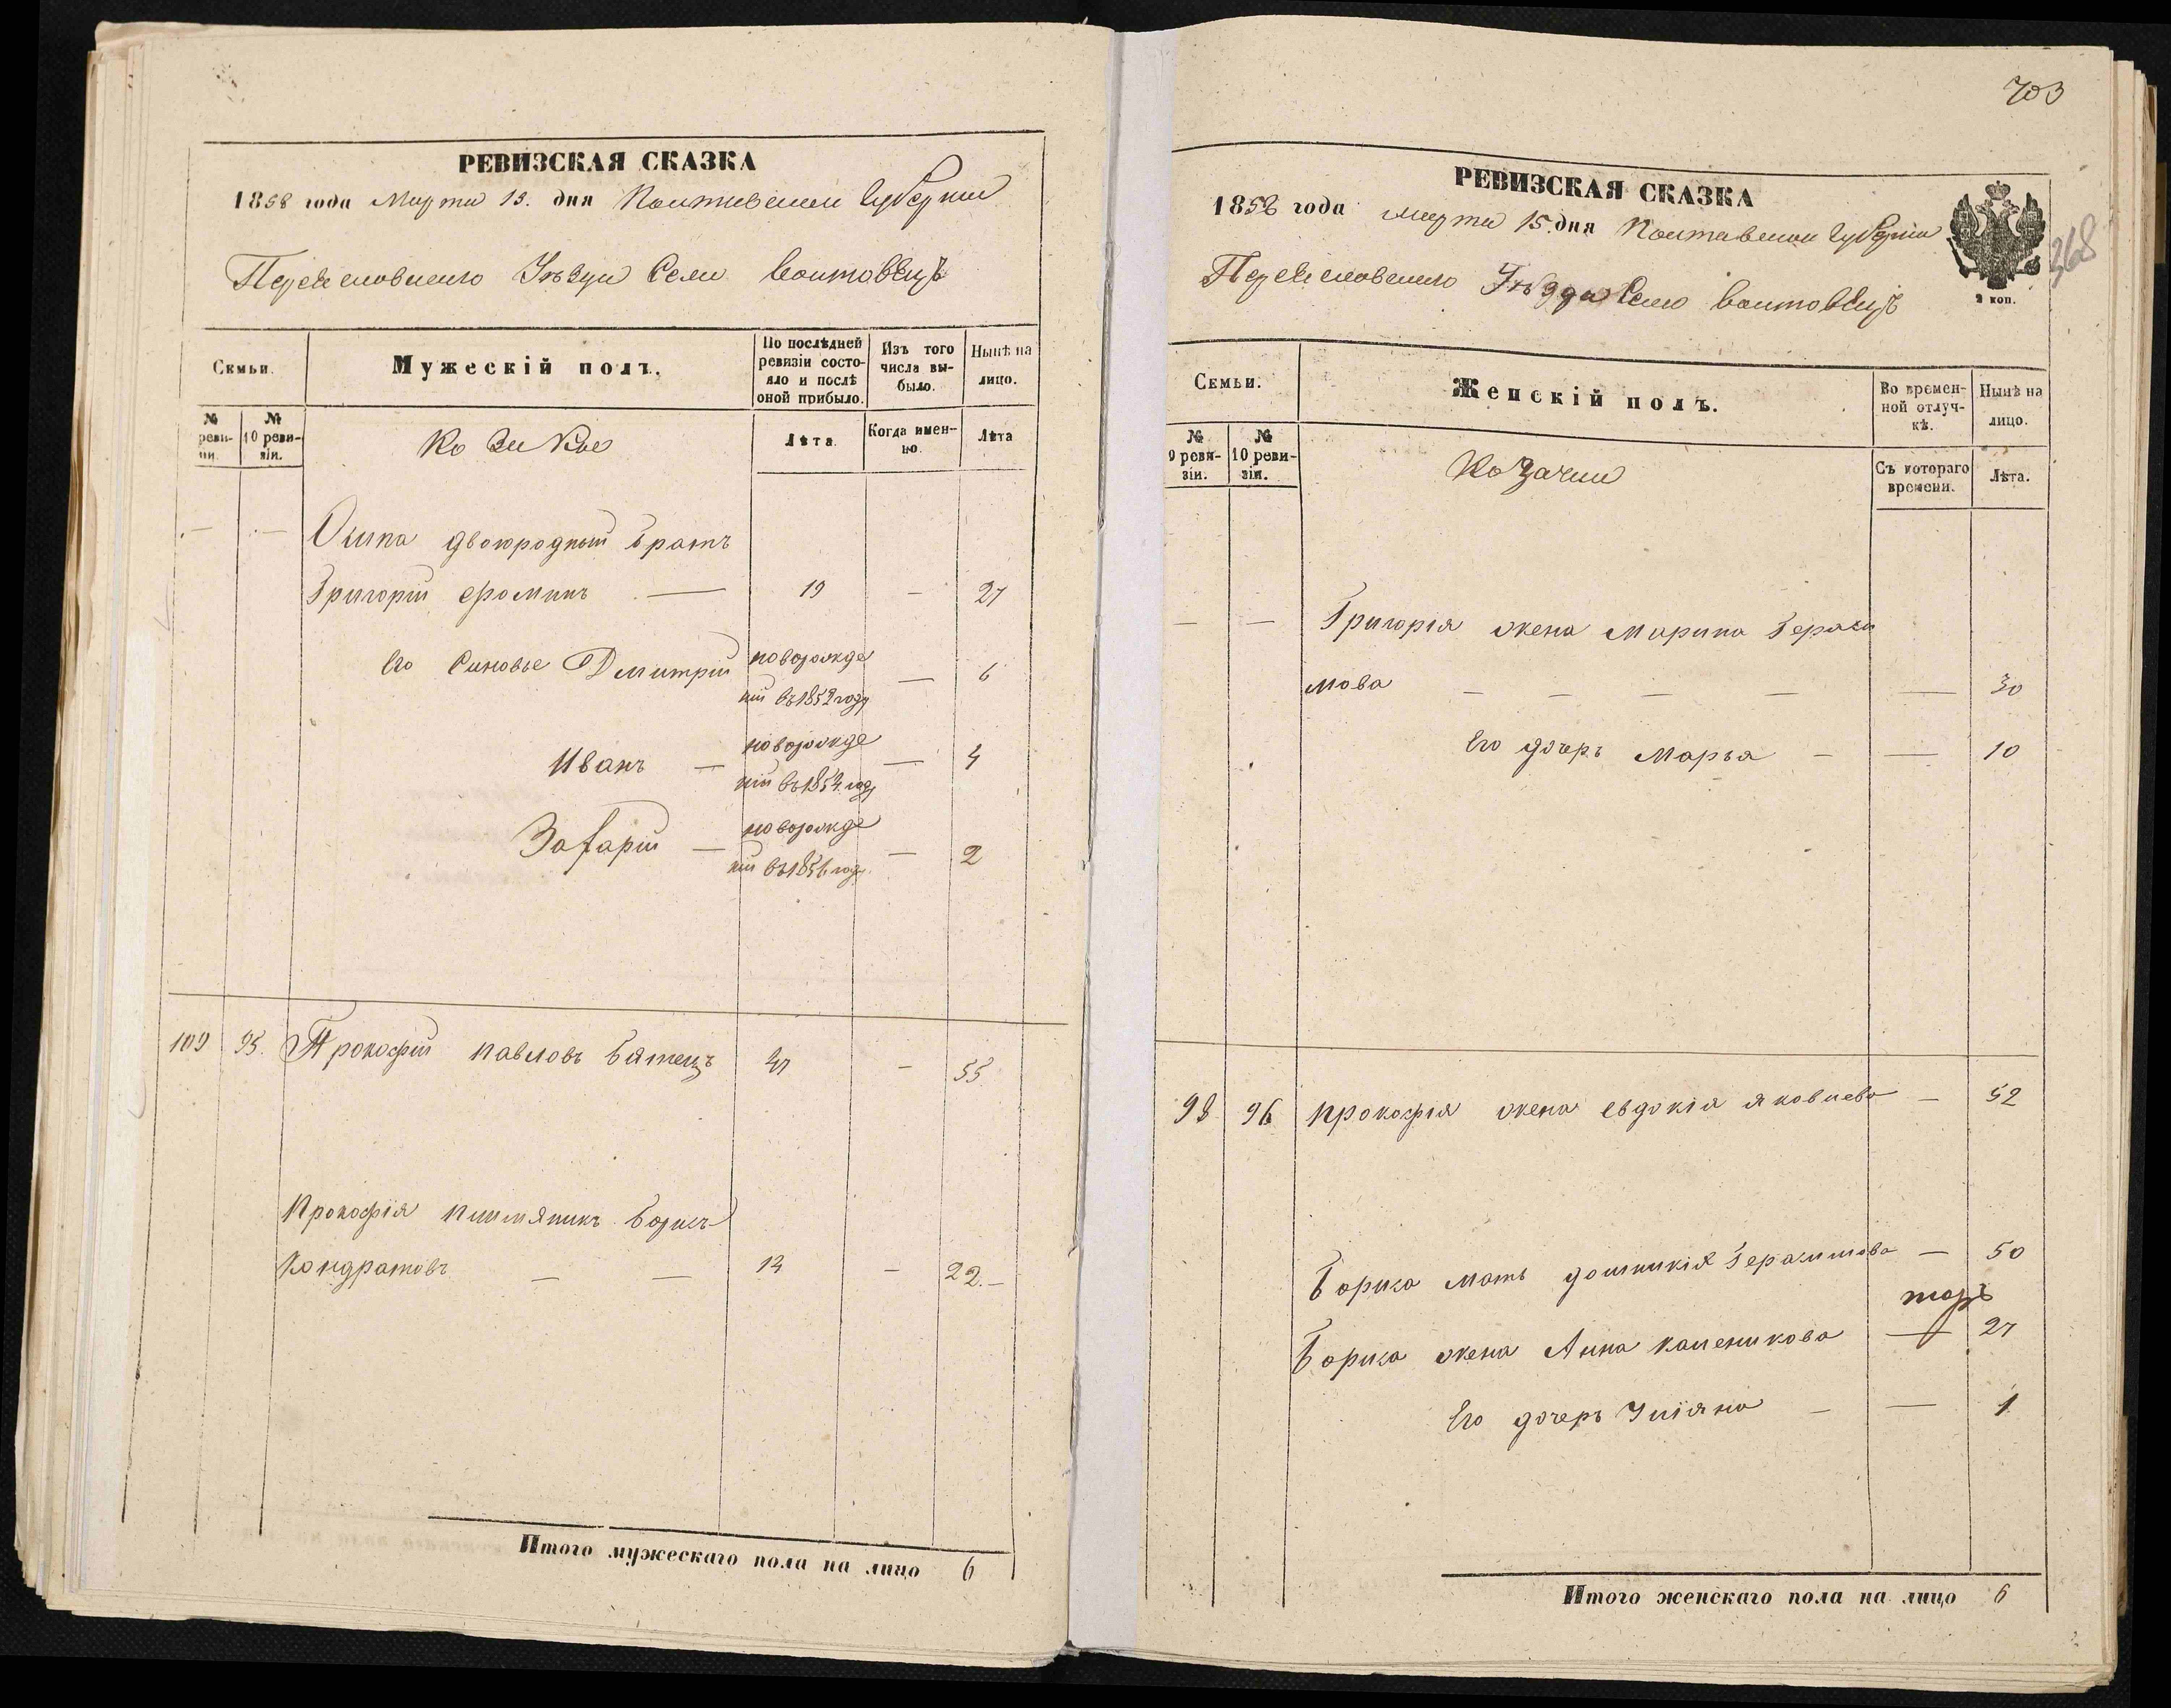 РЕВИЗСКАЯ СКАЗКА
1858 года Марта 15. дня Полтавской Губерніи
Переяславскаго Уѣзда Села Войтовецъ
Семьи.
Мужескій полъ.
По послѣдней ревизіи состояло и послѣ оной прибыло.
Изъ того числа выбыло.
Нынѣ на лицо.
№ реви-
зіи.
№ 10 реви-
зіи.
Козаковъ
Лѣта.
Когда имен-
но.
Лѣта
— —
Осипа двоюродный братъ
Григорій Фоминъ — 19 — 27
Его Синовье Дмитрій новорожде
ній въ 1852 году — 6
Иванъ — новорожде
ній въ 1854 году — 4
Захарій — новорожде
ній въ 1856 году — 2
109 95. Прокофій Павловъ Бятецъ 47 — 55
Прокофія племяникъ Борисъ
Кондратовъ — — 14 — 22.—
Итого мужескаго пола на лицо 6
703
368
РЕВИЗСКАЯ СКАЗКА
1858 года Марта 15. дня Полтавской Губерніи
Переяславскаго Уѣзда Села Войтовецъ
2 коп.
Семьи.
Женскій полъ.
Во времен-
ной отлуч-
кѣ.
Нынѣ на
лицо.
№
9 реви-
зіи.
№
10 реви-
зіи.
Козачки
Съ котораго
времени.
Лѣта.
— — Григорія жена Марина Гераси
мова — — — — — 30
Его дочеръ Марья — — 10
98 96 Прокофія жена Евдокія Яковлева — 52
Бориса мать Домникія Герасимова — 50
Бориса жена Анна Каленикова — 27
Его дочеръ Уліяна — — 1
Итого женскаго пола на лицо 6